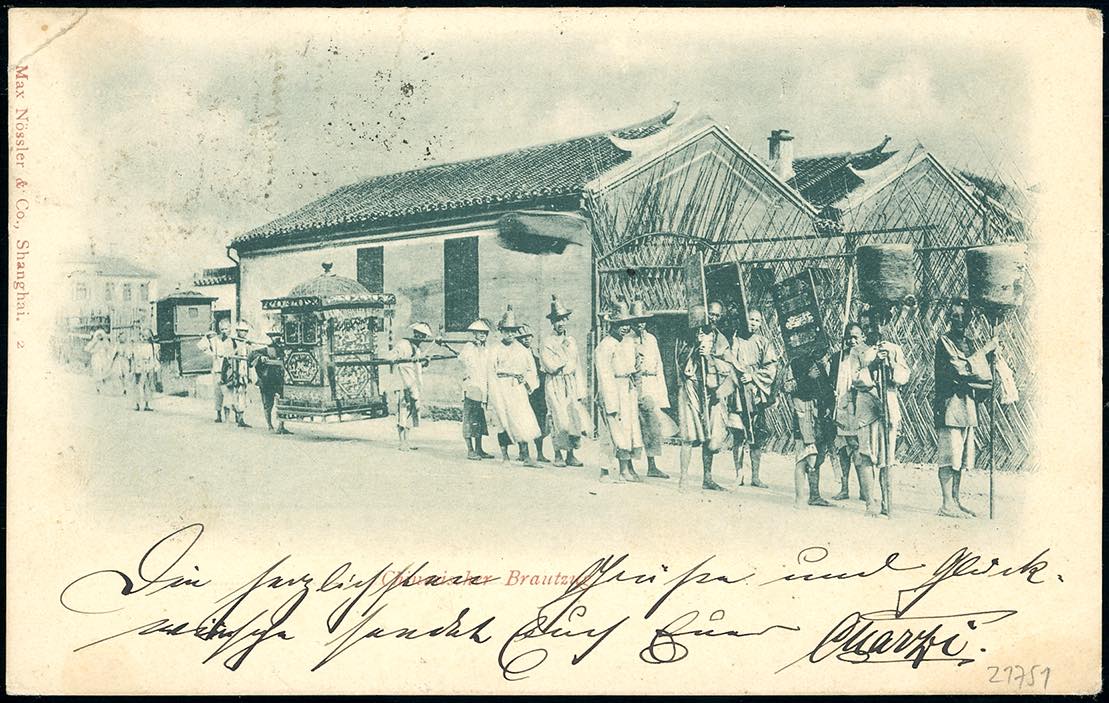 Max Nössler & Co., Shanghai. 2
Chinesischer Brautzug
Die herzlichsten Grüße und Glück-
wünsche sendet Euch Euer
21751